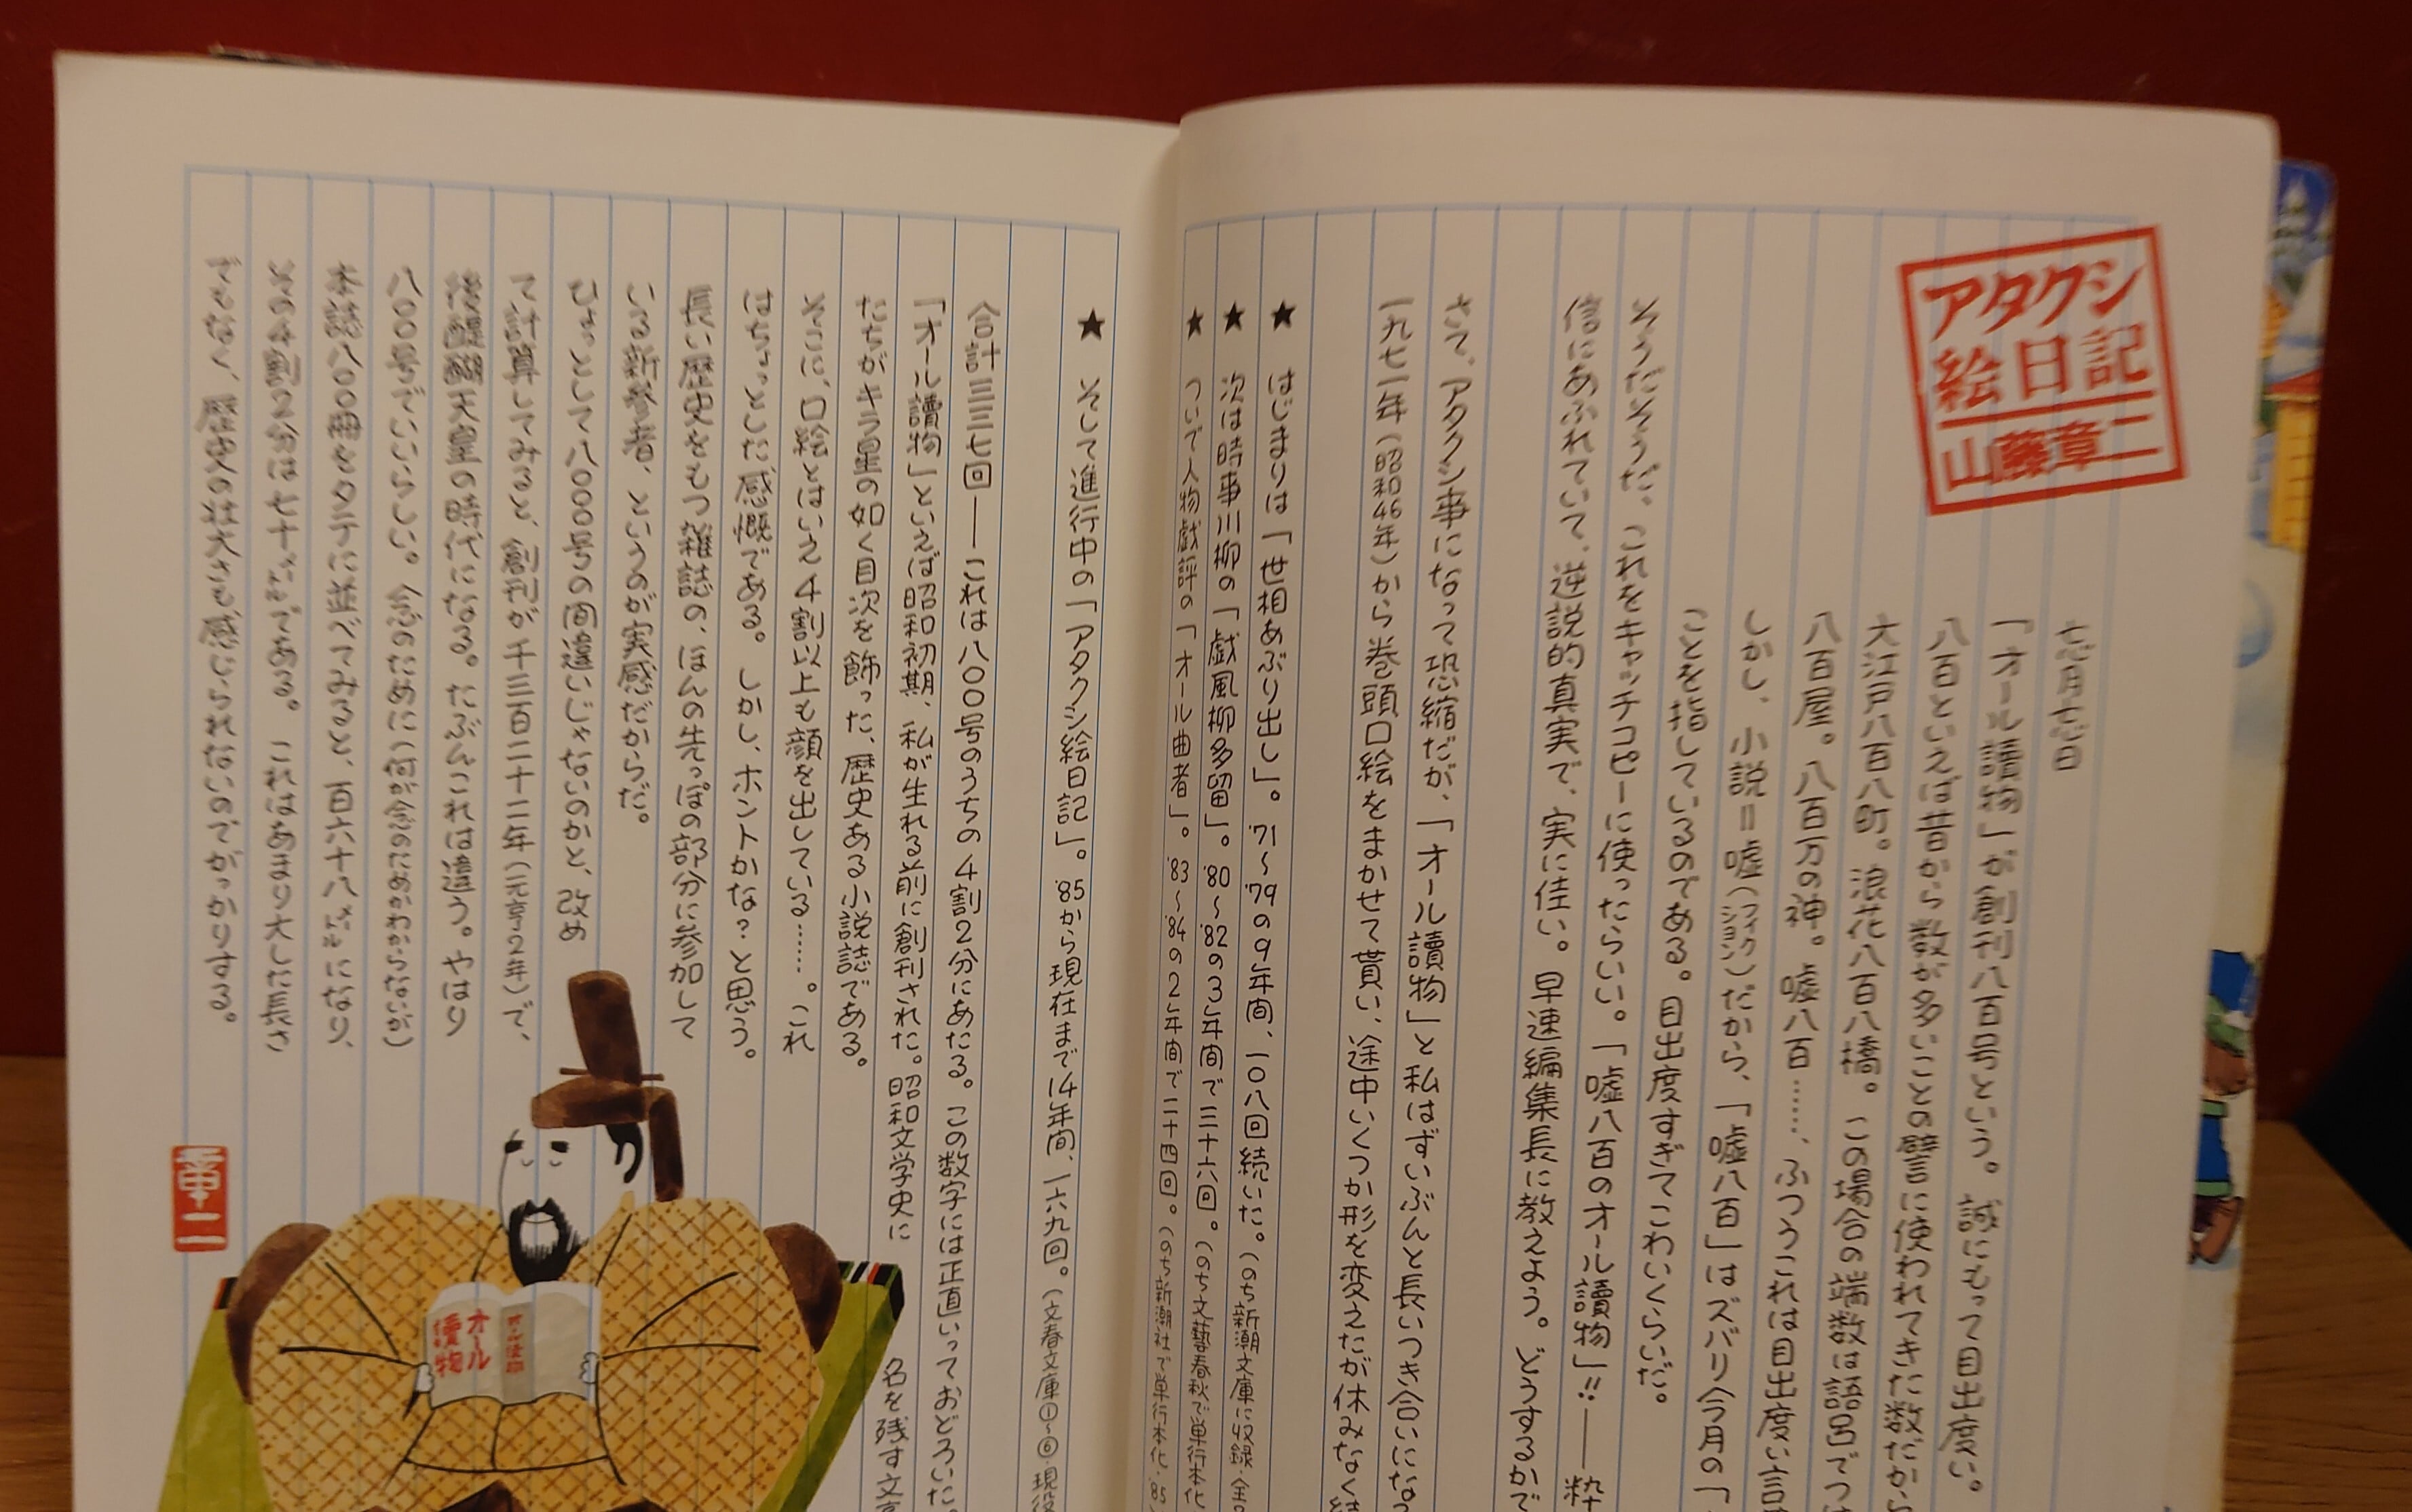 アタクシ
絵日記
山藤章二
忘月忘日
「オール讀物」が創刊八百号という。誠にもって目出度い。
八百といえば昔から数が多いことの譬に使われてきた数だから
大江戸八百八町。浪花八百八橋。この場合の端数は語呂でつけ
八百屋。八百万の神。嘘八百……、ふつうこれは目出度い言
しかし、小説＝嘘（フィクション）だから、「嘘八百」はズバリ今月の「
ことを指しているのである。目出度すぎてこわいくらいだ。
そうだそうだ、これをキャッチコピーに使ったらいい。「嘘八百のオール讀物」!!――粋
信にあふれていて、逆説的真実で、実に佳い。早速編集長に教えよう。どうするかで
さて、アタクシ事になって恐縮だが、「オール讀物」と私はずいぶんと長いつき合いになる
一九七一年（昭和46年）から巻頭口絵をまかせて貰い、途中いくつか形を変えたが休みなく続
★ はじまりは「世相あぶり出し」。'71〜'79の9年間、一〇八回続いた。（のち新潮文庫に収録・全
★ 次は時事川柳の「戯風柳多留」。'80〜'82の3年間で三十六回。（のち文藝春秋で単行本化
★ ついで人物戯評の「オール曲者」。'83〜'84の2年間で二十四回。（のち新潮社で単行本化・'85
★ そして進行中の「アタクシ絵日記」。'85から現在まで14年間、一六九回。（文春文庫①〜⑥・現役
合計三三七回――これは八〇〇号のうちの4割2分にあたる。この数字には正直いっておどろいた。
「オール讀物」といえば昭和初期、私が生れる前に創刊された。昭和文学史に名を残す文
たちがキラ星の如く目次を飾った、歴史ある小説誌である。
そこに、口絵とはいえ4割以上も顔を出している……。これ
はちょっとした感慨である。しかし、ホントかな？と思う。
長い歴史をもつ雑誌の、ほんの先っぽの部分に参加して
いる新参者、というのが実感だからだ。
ひょっとして八〇〇〇号の間違いじゃないのかと、改め
て計算してみると、創刊が千三百二十二年（元亨2年）で、
後醍醐天皇の時代になる。たぶんこれは違う。やはり
八〇〇号でいいらしい。念のために（何が念のためかわからないが）
本誌八〇〇冊をタテに並べてみると、百六十八メートルになり、
その4割2分は七十メートルである。これはあまり大した長さ
でもなく、歴史の壮大さも感じられないのでがっかりする。
章二
オール
讀物